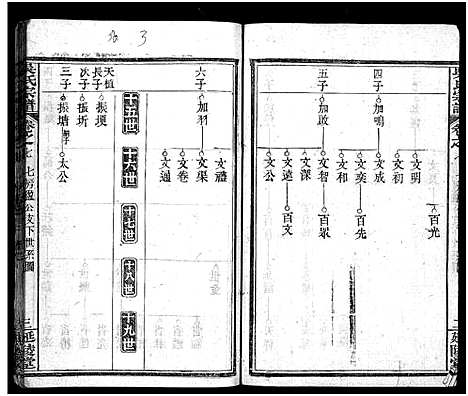 吳氏宗譜
四子
加鳴
文明
文初
文成
文奕
文和
百光
百先
五子
加啟
文智
文深
文遠
百眾
百文
六子
加羽
文禮
文渠
文卷
文通
十五世
十六世
十七世
十八世
十九世
天植
長子
振柷
次子
振圻
三子
振塘
太公
吳氏宗譜
卷之七
七房盈公支下世系圖
三
延陵堂
3